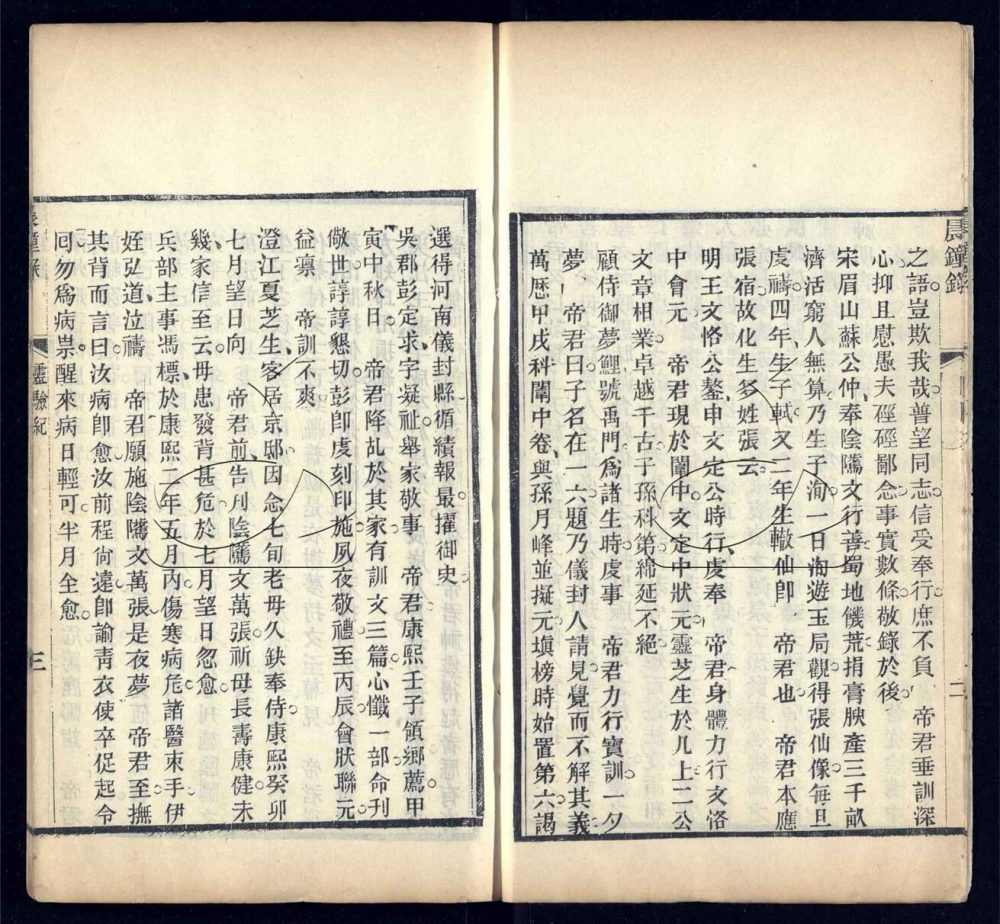 之語豈欺我哉普望同志信受奉行庶不負　帝君垂訓深
心抑且慰愚夫硜硜鄙念事實數條敬錄於後
宋眉山蘇公仲奉陰騭文行善蜀地饑荒捐膏腴產三千畝
濟活窮人無算乃生子洵一日洵遊玉局觀得張仙像每旦
虔禱四年生子軾又二年生轍仙卽　帝君也　帝君本應
張宿故化生多姓張云
明王文恪公鏊申文定公時行虔奉　帝君身體力行文恪
中會元　帝君現於闈中文定中狀元靈芝生於几上二公
文章相業卓越千古子孫科第綿延不絕
顧侍御夢鯉號禹門為諸生時虔事　帝君力行寶訓一夕
夢　帝君曰子名在一六題乃儀封人請見覺而不解其義
萬歷甲戌科闈中卷與孫月峰並擬元塡榜時始置第六謁
晨鐘錄
二
選得河南儀封縣循績報最擢御史
吳郡彭定求字凝祉舉家敬事　帝君康熙壬子領鄉薦甲
寅中秋日　帝君降乩於其家有訓文三篇心懺一部命刊
敬世諄諄懇切彭卽虔刻印施夙夜敬禮至丙辰會狀聯元
益凛　帝訓不爽
澄江夏芝生客居京邸因念七旬老母久缺奉侍康熙癸卯
七月望日向　帝君前告刋陰騭文萬張祈母長壽康健未
幾家信至云母患發背甚危於七月望日忽愈
兵部主事馮標於康熙二年五月內傷寒病危諸醫束手伊
姪弘道泣禱　帝君願施陰騭文萬張是夜夢　帝君至撫
其背而言曰汝病卽愈汝前程尙遠卽諭靑衣使卒促起令
囘勿爲病祟醒來病日輕可半月全愈
靈驗紀
三